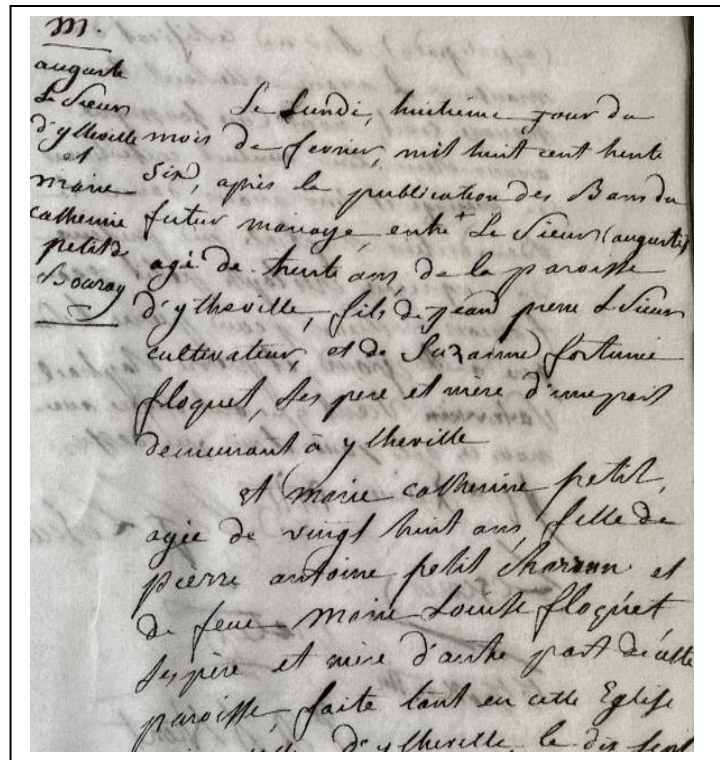 M.
auguste
Le Sieur
d'ytteville
et
marie
catherine
petit de
Bouray
Le Lundi, huitième jour du
mois de fevrier, mil huit cent trente
six, après la publication des Bans du
futur mariage, entre + Le Sieur (auguste)
agé de trente ans, de la paroisse
d'ytheville, fils de jean pierre Le Sieur
cultivateur, et de Suzanne fortunée
floquet, ses pere et mere d'une part
demeurant à ytheville
et marie catherine petit,
agée de vingt huit ans, fille de
pierre antoine petit charron et
de feue marie Louise floquet
ses père et mère d'autre part de cette
paroisse, faite tant en cette Eglise
d'ytheville, le dix sept